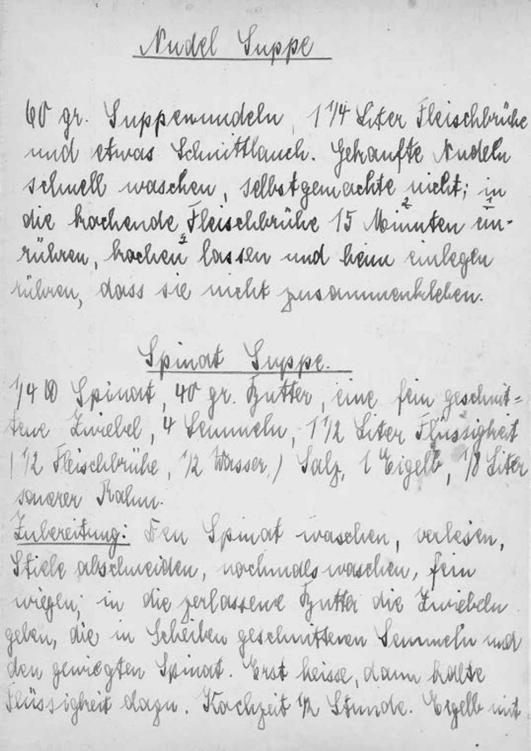 Nudel Suppe
60 gr. Suppennudeln, 1 1/4 Liter Fleischbrühe
und etwas Schnittlauch. Gekaufte Nudeln
schnell waschen, selbstgemachte nicht; in
die kochende Fleischbrühe 15 Minuten ein-
rühren, kochen lassen und beim einlegen
rühren, dass sie nicht zusammenkleben.
Spinat Suppe.
1/4 ℔ Spinat, 40 gr. Butter, eine fein geschnit=
tene Zwiebel, 4 Semmeln, 1 1/2 Liter Flüssigkeit
(1/2 Fleischbrühe, 1/2 Wasser,) Salz, 1 Eigelb, 1/8 Liter
saurer Rahm.
Zubereitung: Den Spinat waschen, verlesen,
Stiele abschneiden, nochmals waschen, fein
wiegen; in die zerlassene Butter die Zwiebeln
geben, die in Scheiben geschnittenen Semmeln und
den gewiegten Spinat. Erst heisse, dann kalte
Flüssigkeit dazu. Kochzeit 1/2 Stunde. Eigelb mit